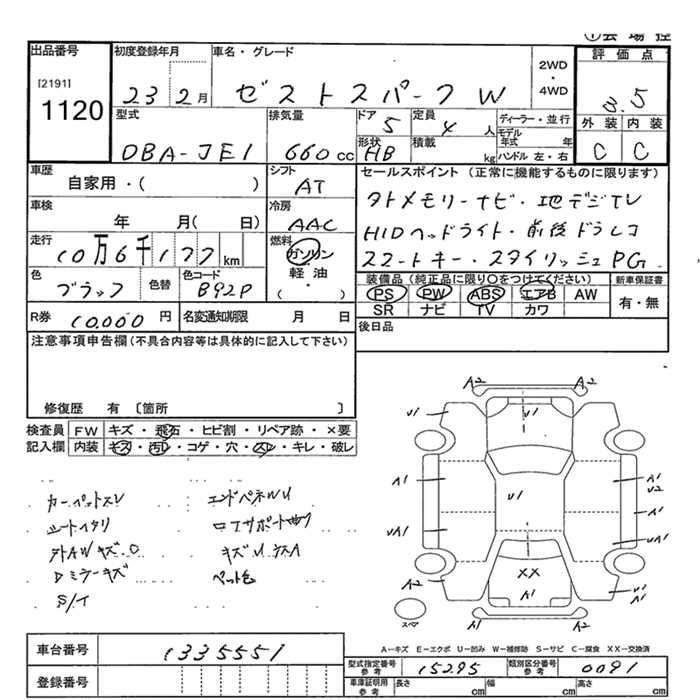 ①会場控
出品番号
[2191]
1120
初度登録年月
23 2月
車名・グレード
ゼストスパーク W
2WD・4WD
評価点
3.5
型式
DBA-JE1
排気量
660cc
ドア
5
定員
4人
ディーラー・並行
モデル年式 年
形状
HB
積載
kg
ハンドル 左・右
外装 内装
C C
車歴
自家用・( )
シフト
AT
車検
年 月( 日)
冷房
AAC
走行
10万6千177km
燃料
ガソリン・軽油・( )
色
ブラック
色替
色コード
B92P
R券
10,000円
名変通知期限 月 日
セールスポイント（正常に機能するものに限ります）
外メモリーナビ・地デジTV
HIDヘッドライト・前後ドラレコ
スマートキー・スタイリッシュPG.
装備品（純正品に限り〇をつけてください）
新車保証書
PS PW ABS エアB AW
有・無
SR ナビ TV カワ
後日品
注意事項申告欄(不具合内容等は具体的に記入して下さい)
修復歴 有 〔箇所 〕
検査員記入欄
FW キズ・飛石・ヒビ割・リペア跡・×要
内装 キズ・汚レ・コゲ・穴・スレ・キレ・破レ
カーペットスレ
シートヘタリ
外AWキズ.
ドミラーキズ
S/イ
エンドパネルU
コアサポート曲り
ペット色
A2 A2
U1 U1
A1 U1 A1
U2
A1
UA1 UA1
A2 XX U1
A1 A1
スペア A1 A2
A-キズ E-エクボ U-凹み W-補修跡 S-サビ C-腐食 XX-交換済
車台番号
1335551
登録番号
型式指定番号 参考
15295
類別区分番号 参考
0091
車庫証明用 参考
長さ cm
幅 cm
高さ cm